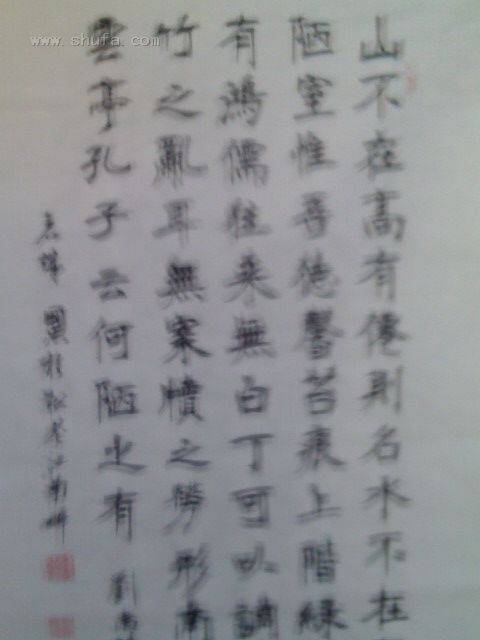 山不在高有僊則名水不在
陋室惟吾德馨苔痕上階綠
有鴻儒往来無白丁可以調
竹之亂耳無案牘之勞形南
雲亭孔子云何陋之有 劉禹
www.shufa.com